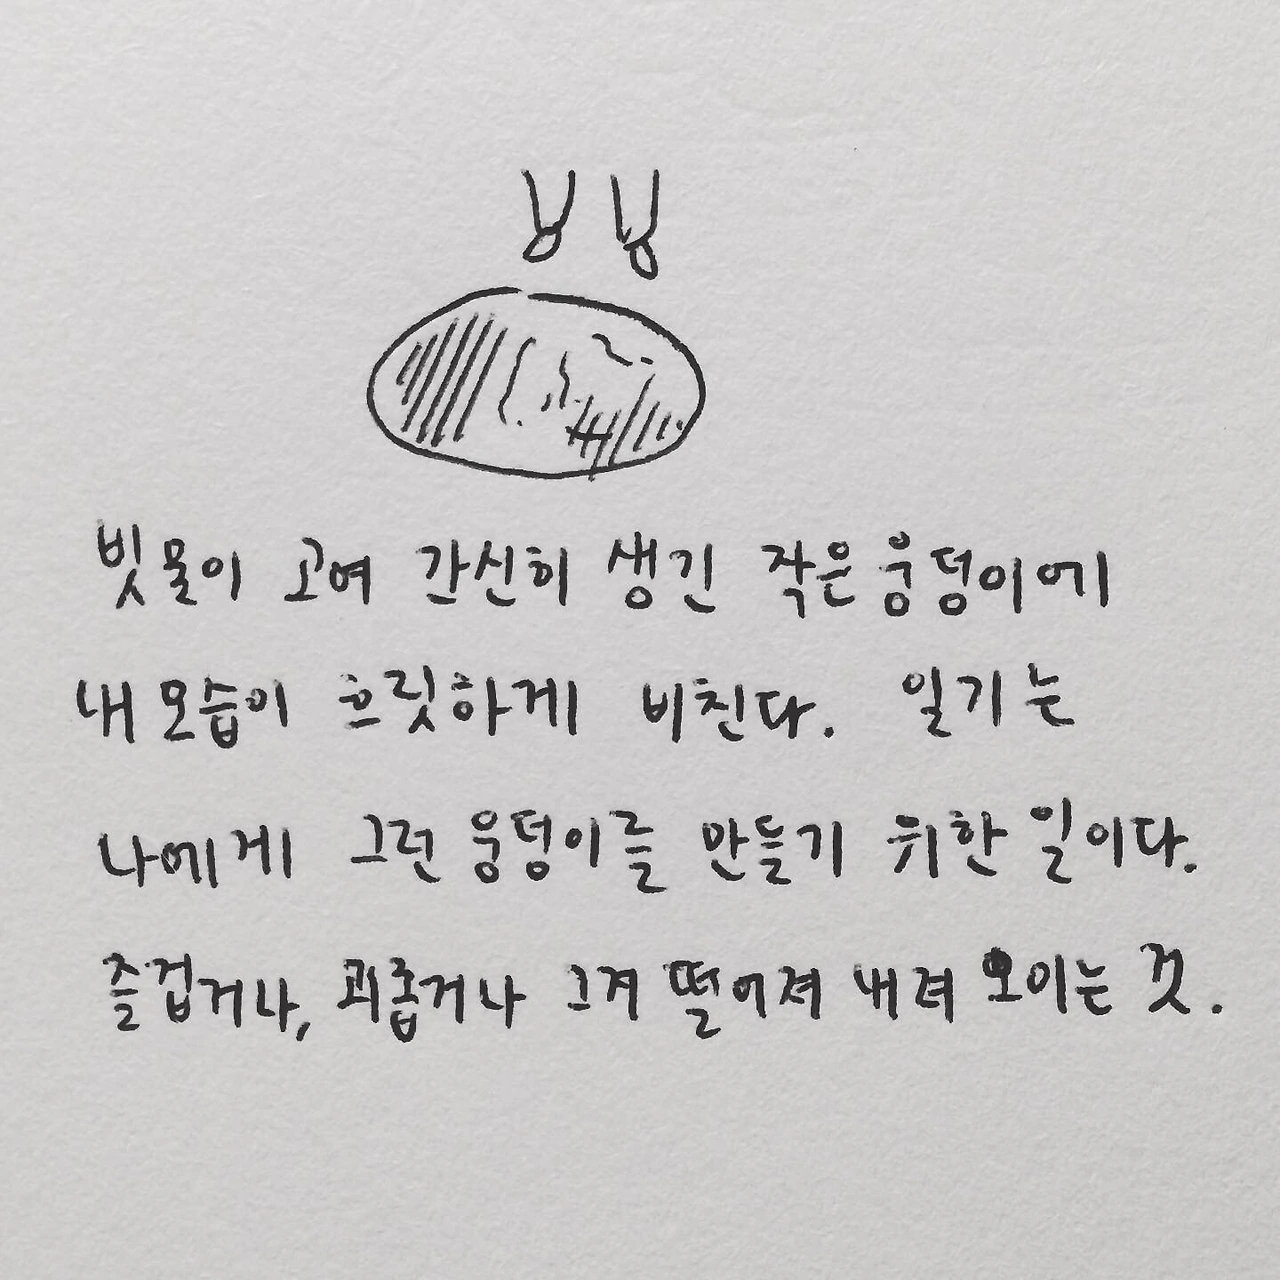 빗물이 고여 간신히 생긴 작은 웅덩이에
내 모습이 흐릿하게 비친다. 일기는
나에게 그런 웅덩이를 만들기 위한 일이다.
즐겁거나, 괴롭거나 그저 떨어져 내려 모이는 것.